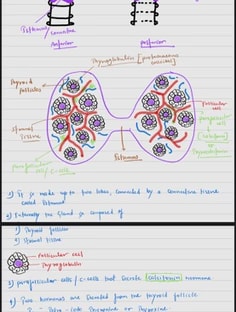 Isthmus
Connective
tissue
Anterior
Posterior
Thyroglobulin
Thyroid
follicles
Stromal
tissue
parafollicular
cells / C-cells
Isthmus
Follicular
cell
parafollicular
cells
calcitonin
1) It is made up to two lobes, connected by a connective tissue
called Isthmus
2) Externally the gland is composed of
1) Thyroid follicles
2) Stromal tissue
Follicular cell
Thyroglobulin
3) parafollicular cells / C-cells that secrete calcitonin hormone
4) Two hormones are secreted from the thyroid follicle